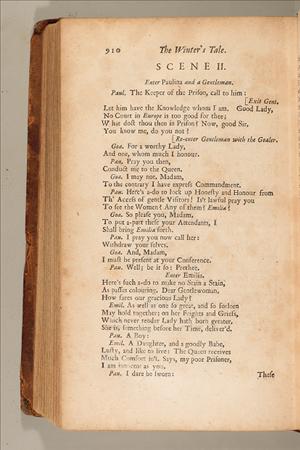 910 The Winter's Tale.
SCENE II.
Enter Paulina and a Gentleman.
Paul. The Keeper of the Prison, call to him:
[Exit Gent.
Let him have the Knowledge whom I am. Good Lady,
No Court in Europe is too good for thee;
What dost thou then in Prison? Now, good Sir,
You know me, do you not?
[Re-enter Gentleman with the Goaler.
Goa. For a worthy Lady,
And one, whom much I honour.
Pau. Pray you then,
Conduct me to the Queen.
Goa. I may not, Madam,
To the contrary I have express Commandment.
Pau. Here's a-do to lock up Honesty and Honour from
Th' Access of gentle Visitors! Is't lawful pray you
To see the Women? Any of them? Emilia?
Goa. So please you, Madam,
To put a-part these your Attendants, I
Shall bring Emilia forth.
Pau. I pray you now call her:
Withdraw your selves.
Goa. And, Madam,
I must be present at your Conference.
Pau. Well; be it so: Prethee.
Enter Emilia.
Here's such a-do to make no Stain a Stain,
As passes colouring. Dear Gentlewoman,
How fares our gracious Lady?
Emil. As well as one so great, and so forlorn
May hold together; on her Frights and Griefs,
Which never tender Lady hath born greater,
She is, something before her Time, deliver'd.
Pau. A Boy?
Emil. A Daughter, and a goodly Babe,
Lusty, and like to live: The Queen receives
Much Comfort in't. Says, my poor Prisoner,
I am innocent as you.
Pau. I dare be sworn: These